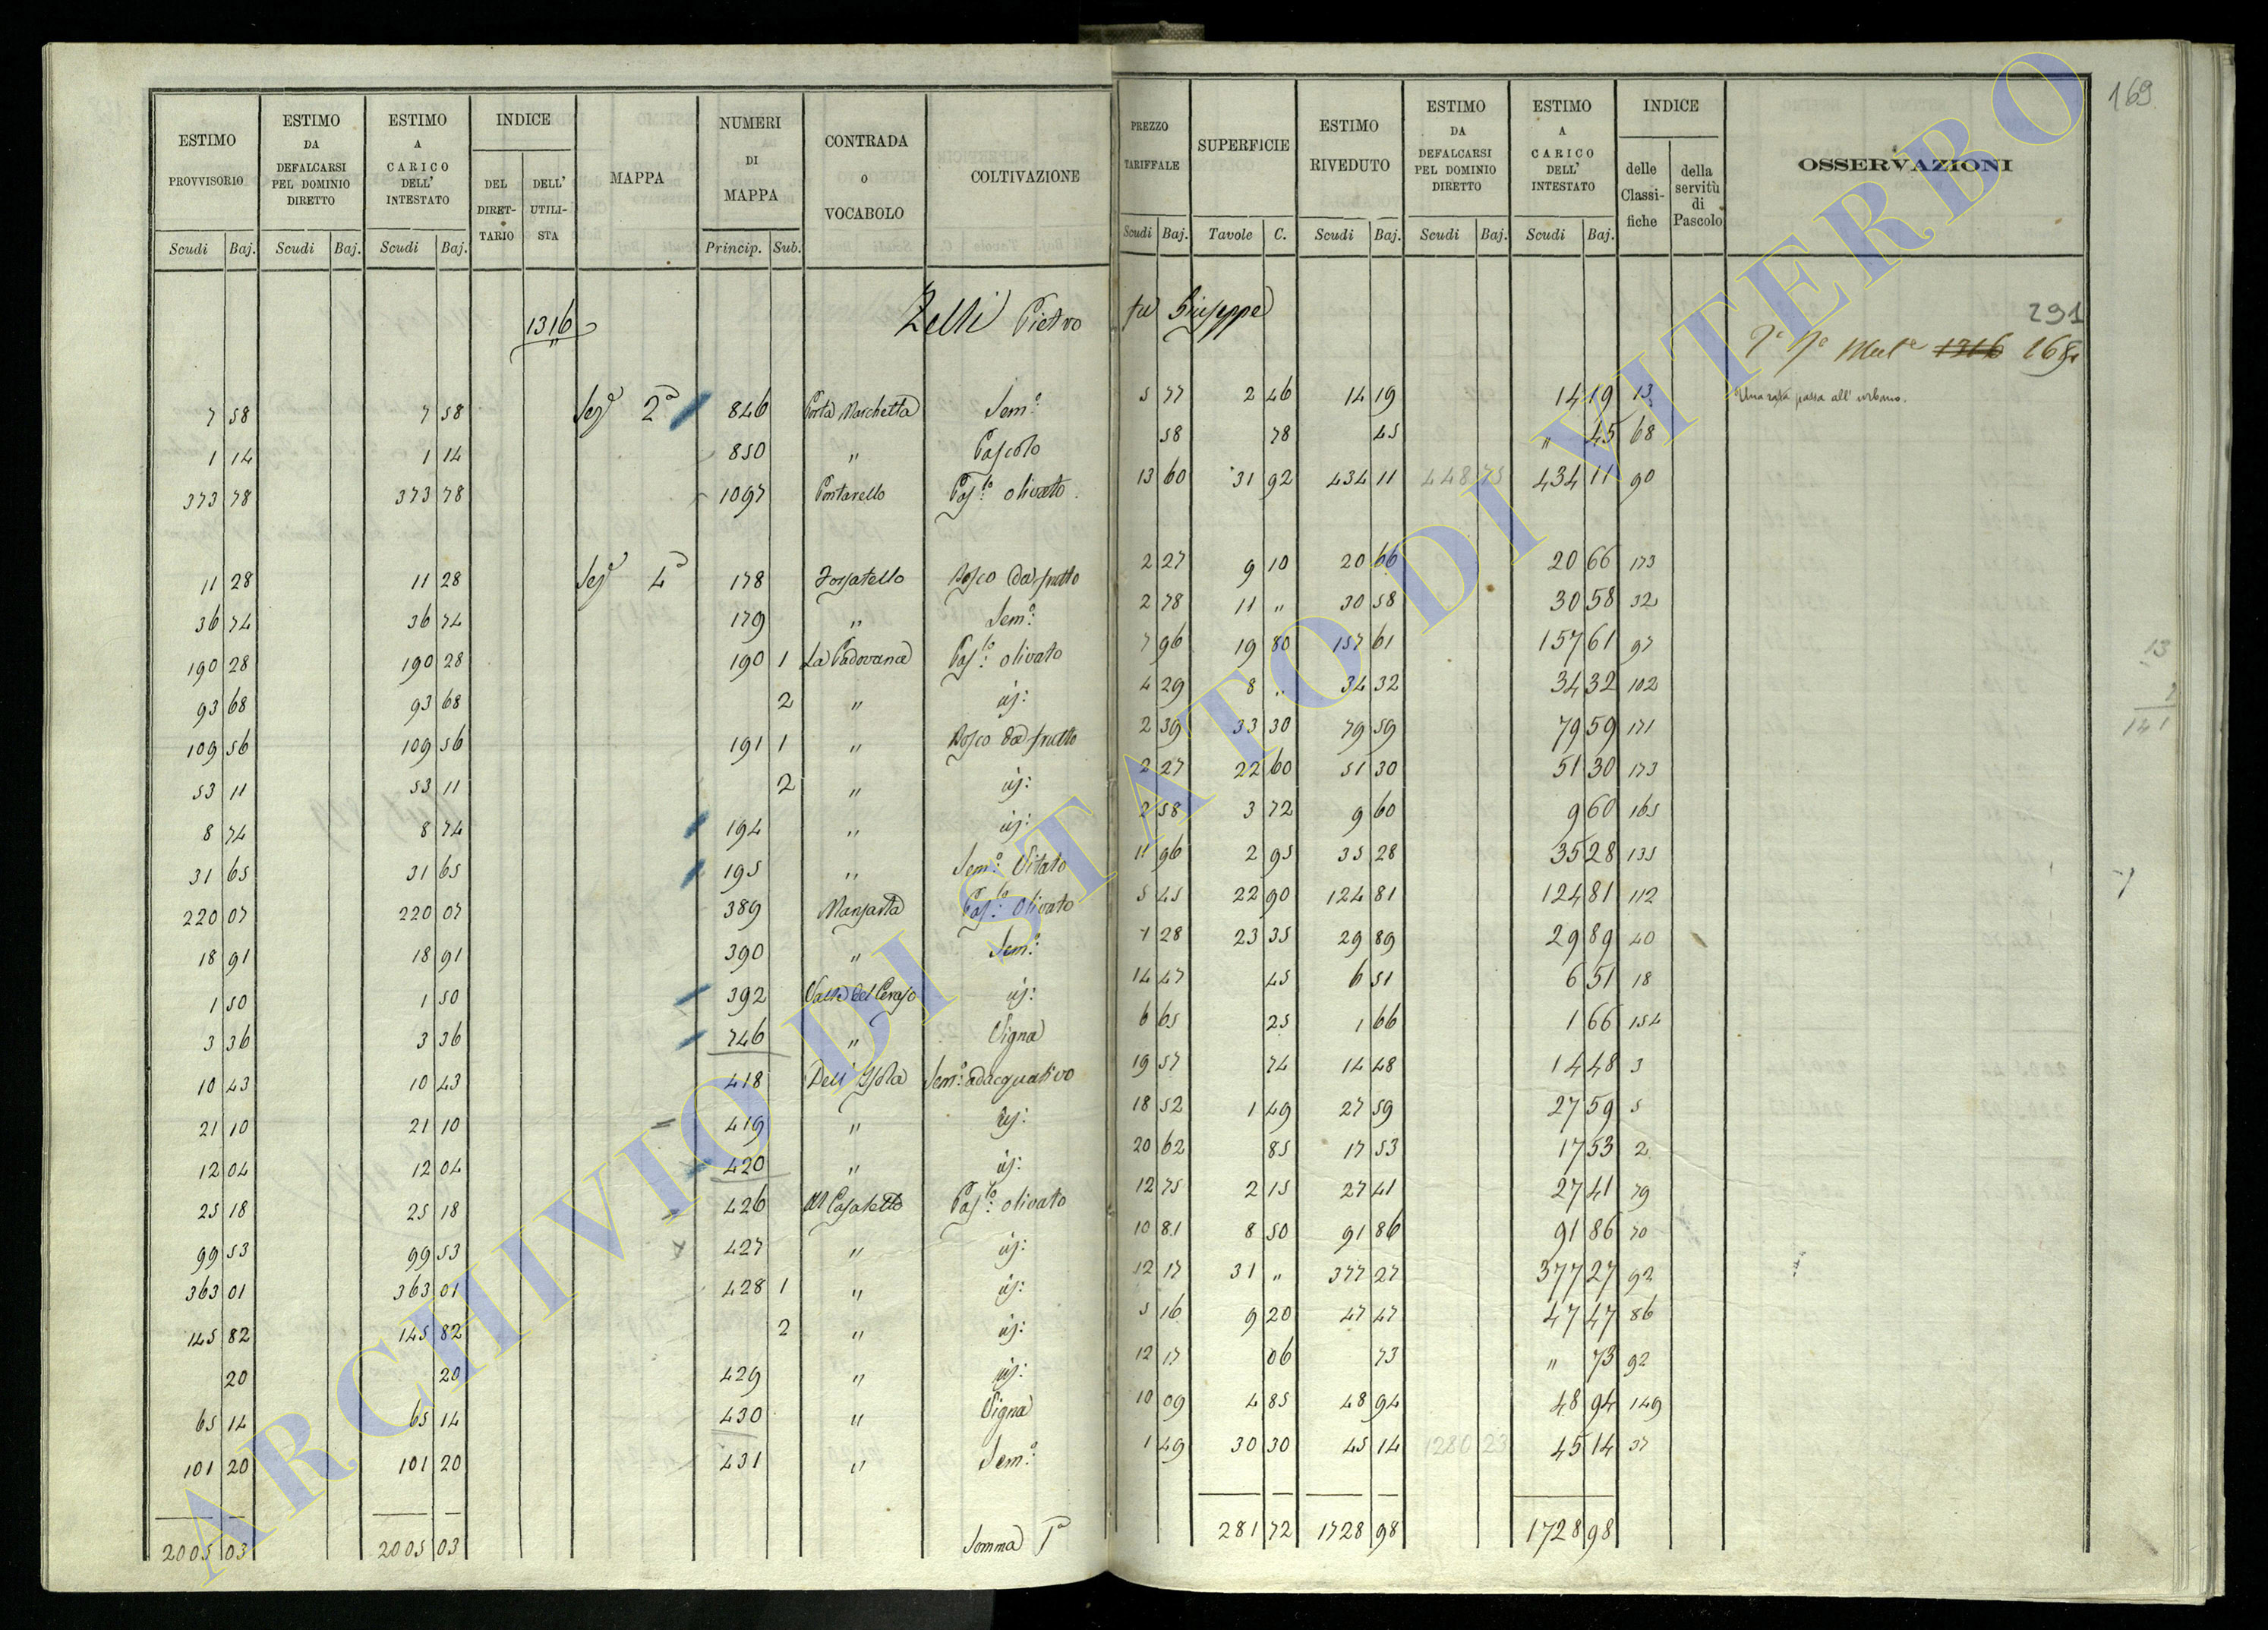 169
ESTIMO PROVVISORIO | ESTIMO DA DEFALCARSI PEL DOMINIO DIRETTO | ESTIMO A CARICO DELL' INTESTATO | INDICE DEL DIRETTARIO | DELL' UTILISTA | MAPPA | NUMERI DI MAPPA | CONTRADA O VOCABOLO | COLTIVAZIONE | PREZZO TARIFFALE | SUPERFICIE | ESTIMO RIVEDUTO | ESTIMO DA DEFALCARSI PEL DOMINIO DIRETTO | ESTIMO A CARICO DELL' INTESTATO | INDICE delle Classifiche | della servitù di Pascolo | OSSERVAZIONI
Scudi Baj. | Scudi Baj. | Scudi Baj. | Princip. Sub. | Scudi Baj. | Tavole C. | Scudi Baj. | Scudi Baj. | Scudi Baj.
1316 Zelli Pietro fu Giuseppe 291
1316 168
7 58 | 7 58 | Sez.e 2a | 846 | Porta Marchetta | Sem.o | 5 77 | 2 46 | 14 19 | 14 19 | 13 | Una rata passa all' urbano.
1 14 | 1 14 | 850 | " | Pascolo | 58 | 78 | 45 | " 45 | 68
373 78 | 373 78 | 1097 | Pontarello | Pas.lo olivato | 13 60 | 31 92 | 434 11 | 448 75 | 434 11 | 90
11 28 | 11 28 | Sez.e 4a | 178 | Fossatello | Bosco da frutto | 2 27 | 9 10 | 20 66 | 20 66 | 173
36 74 | 36 74 | 179 | " | Sem.o | 2 78 | 11 " | 30 58 | 30 58 | 32
190 28 | 190 28 | 190 1 | La Padovana | Pas.lo olivato | 7 96 | 19 80 | 157 61 | 157 61 | 97
93 68 | 93 68 | 2 | " | id: | 4 29 | 8 " | 34 32 | 34 32 | 102
109 56 | 109 56 | 191 1 | " | Bosco da frutto | 2 39 | 33 30 | 79 59 | 79 59 | 171
53 11 | 53 11 | 2 | " | id: | 2 27 | 22 60 | 51 30 | 51 30 | 173
8 74 | 8 74 | 194 | " | id: | 2 58 | 3 72 | 9 60 | 9 60 | 165
31 65 | 31 65 | 195 | " | Sem.o Vitato | 11 96 | 2 95 | 35 28 | 35 28 | 135
220 07 | 220 07 | 389 | Manganta | Pas.lo Olivato | 5 45 | 22 90 | 124 81 | 124 81 | 112
18 91 | 18 91 | 390 | " | Sem.o | 1 28 | 23 35 | 29 89 | 29 89 | 40
1 50 | 1 50 | 392 | Valle del Ceraso | id: | 14 47 | 45 | 6 51 | 6 51 | 18
3 36 | 3 36 | 746 | " | Vigna | 6 65 | 25 | 1 66 | 1 66 | 154
10 43 | 10 43 | 418 | Dell' Isola | Sem.o adacquativo | 19 57 | 74 | 14 48 | 14 48 | 3
21 10 | 21 10 | 419 | " | id: | 18 52 | 1 49 | 27 59 | 27 59 | 5
12 04 | 12 04 | 420 | " | id: | 20 62 | 85 | 17 53 | 17 53 | 2
25 18 | 25 18 | 426 | Il Casaletto | Pas.lo olivato | 12 75 | 2 15 | 27 41 | 27 41 | 79
99 53 | 99 53 | 427 | " | id: | 10 81 | 8 50 | 91 86 | 91 86 | 70
363 01 | 363 01 | 428 1 | " | id: | 12 17 | 31 " | 377 27 | 377 27 | 92
145 82 | 145 82 | 2 | " | id: | 5 16 | 9 20 | 47 47 | 47 47 | 86
20 | 20 | 429 | " | id: | 12 17 | 06 | 73 | " 73 | 92
65 14 | 65 14 | 430 | " | Vigna | 10 09 | 4 85 | 48 94 | 48 94 | 149
101 20 | 101 20 | 431 | " | Sem.o | 1 49 | 30 30 | 45 14 | 1280 23 | 45 14 | 37
2005 03 | 2005 03 | Somma 1a | 281 72 | 1728 98 | 1728 98
13
141
ARCHIVIO DI STATO DI VITERBO